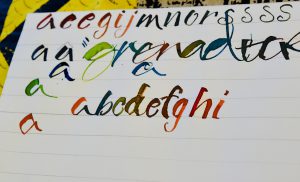 a c e g i j m n o r s s s s s
a a " grenadick
a a
a
a abcdefghi